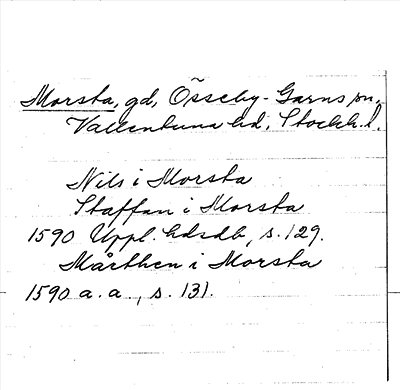 Morsta, gd, Össeby-Garns sn,
Vallentuna hd, Stockh. l.
Nils i Morsta
Staffan i Morsta
1590 Uppl. hdsdb, s. 129.
Mårthen i Morsta
1590 a. a., s. 131.